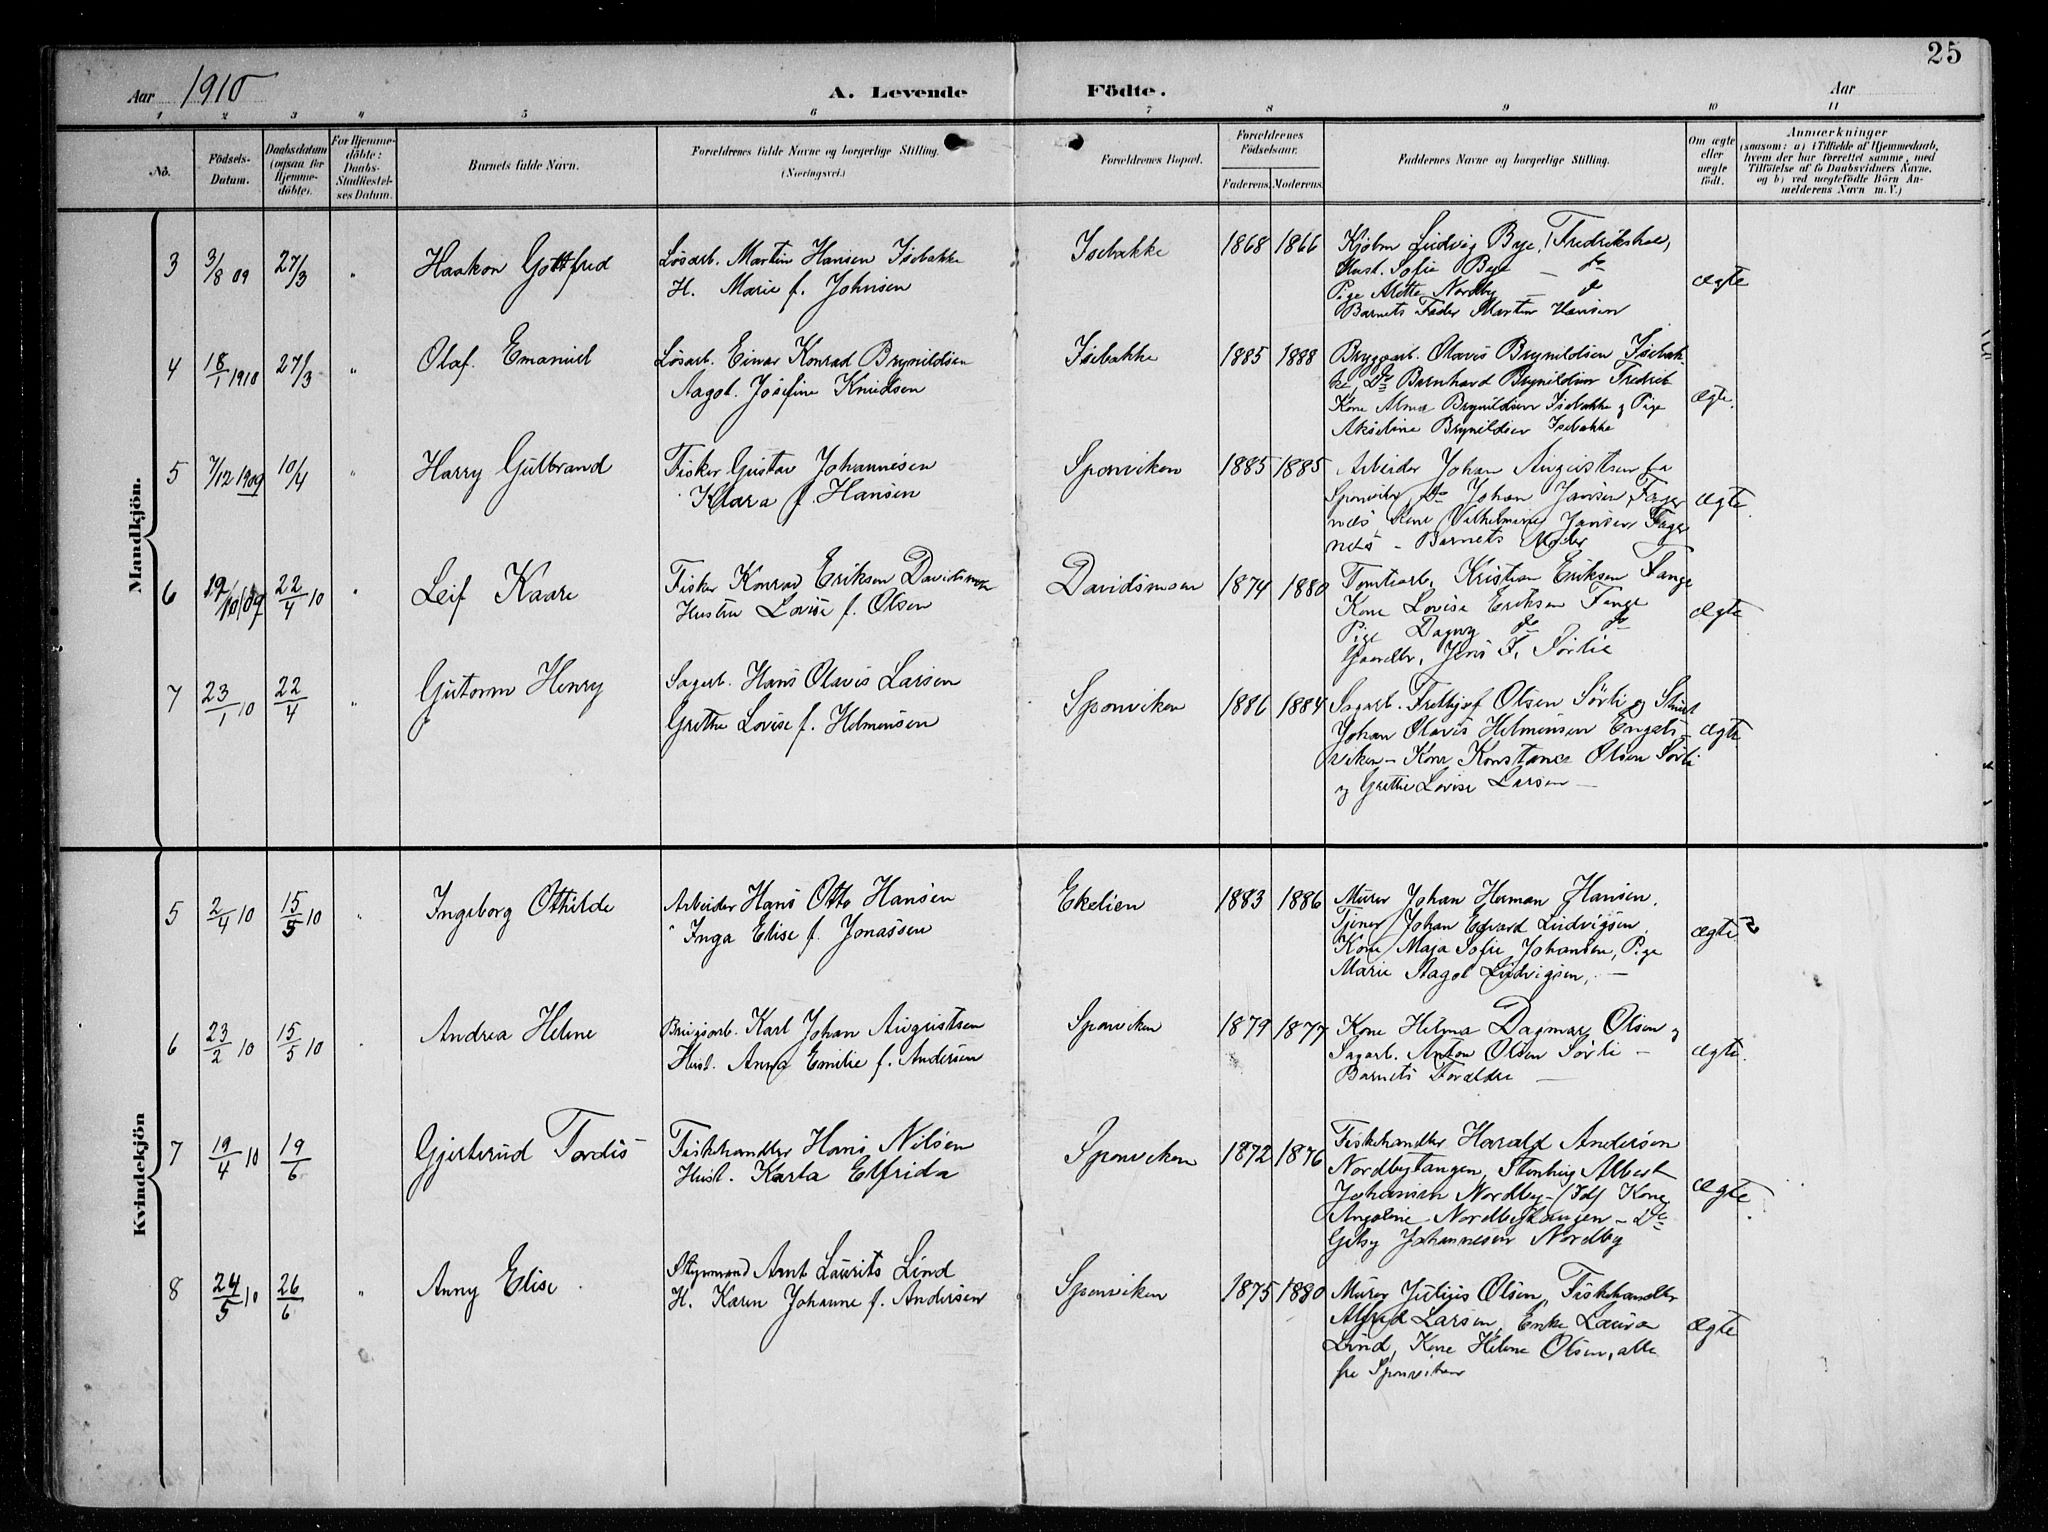 25
Aar 1910 A. Levende Födte. Aar
1 2 3 4 5 6 7 8 9 10 11
No.
Födsels-Datum.
Daabsdatum (ogsaa for Hjemme-döbte).
For Hjemme-döbte: Daabs-Stadfæstel-ses Datum.
Barnets fulde Navn.
Forældrenes fulde Navne og borgerlige Stilling. (Næringsvei.)
Forældrenes Bopæl.
Forældrenes Födselsaar.
Faderens. Moderens.
Faddernes Navne og borgerlige Stilling.
Om ægte eller uægte födt.
Anmærkninger
(saasom: a) i Tilfælde af Hjemmedaab, hvem der har forrettet samme, med Tilföielse af to Daabsvidners Navne. og b) ved uægtefödte Börn An-melderens Navn m. V.)
Mandkjön.
3 3/8 09 27/3 " Haakon Gottfred
Løsarb. Martin Hansen Isebakke
H. Marie f. Johnsen
Isebakke 1868 1866
Kjøbm Ludvig Bye, Fredrikshal,
Hust. Sofie Bye — do
Pige Alette Nordby — do
Barnets Fader Martin Hansen
ægte
4 18/1 1910 27/3 " Olaf Emanuel
Løsarb. Einar Konrad Brynildsen
Aagot Josefine Knudsen
Isebakke 1885 1888
Bryggearb. Olavis Brynildsen Isebak-
ke, Do Bernhard Brynildsen Fredrik
Kone Alma Brynildsen Isebakke og Pige
Akseline Brynildsen Isebakke
Ægte.
5 7/12 1909 10/4 " Harry Gulbrand
Fisker Gustav Johannesen
Klara f. Hansen
Sponviken 1885 1885
Arbeider Johan Augustsen fra
Sponvike, Do Johan Jansen, Fager
næs, Kone Vilhelmine Jansen Fager
næs — Barnets Moder
Ægte.
6 19/10 09 22/4 10 " Leif Kaare
Fisker Konrad Eriksen Davidsmoen
Hustru Lovise f. Olsen
Davidsmoen 1874 1880
Tomtearb. Kristian Eriksen Fange
Kone Lovise Eriksen Fange
Pige Dagny do do
Gaardbr. Jens F. Sørlie
Ægte
7 23/1 10 22/4 " Gutorm Henry
Sagarb. Hans Olavis Larsen
Grethe Lovise f. Helmensen
Sponviken 1886 1884
Sagarb. Fretthjof Olsen Sørli og
Johan Olavis Helmensen Engels-
viken — Kone Konstance Olsen Sørli
og Grethe Lovise Larsen —
ægte
Kvindekjön
5 2/4 10 15/5 10 " Ingeborg Othilde
Arbeider Hans Otto Hansen
" Inga Elise f. Jonassen
Ekelien 1883 1886
Murer Johan Herman Hansen.
Tjener Johan Edvard Ludvigsen,
Kone Maja Sofie Johansen, Pige
Marie Aagot Ludvigsen, —
ægte
6 23/2 10 15/5 10 Andrea Helene
Brugsarb. Karl Johan Augustsen
Hust. Anna Emilie f. Andersen
Sponviken 1879 1877
Kone Helma Dagmar Olsen og
Sagarb. Anton Olsen Sørli —
Barnets Forældre —
ægte.
7 19/4 10 19/6 Gjerterud Tordis
Fiskehandler Hans Nilsen
Hust. Karla Elfrida
Sponviken 1872 1876
Fiskehandler Harald Andersen
Nordbytangen, Stenhug Albert
Johansen Nordby — (Id) Kone
Angoline Nordbytangen — Do
Gitsy Johannesen Nordby
ægte.
8 24/5 10 26/6 " Anny Elise
Styrmand Arnt Laurits Lind
H. Karen Johanne f. Andersen
Sponviken 1875 1880
Murer Julius Olsen, Fiskehandler
Alfred Larsen, Enke Laura
Lind, Kone Helene Olsen, alle
fra Sponviken
Ægte